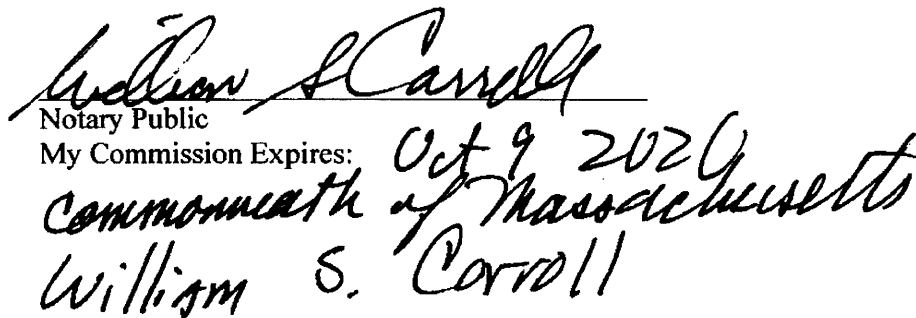 William S Carroll
Notary Public
My Commission Expires: Oct 9 2020
Commonweath of Massachusetts
William S. Carroll